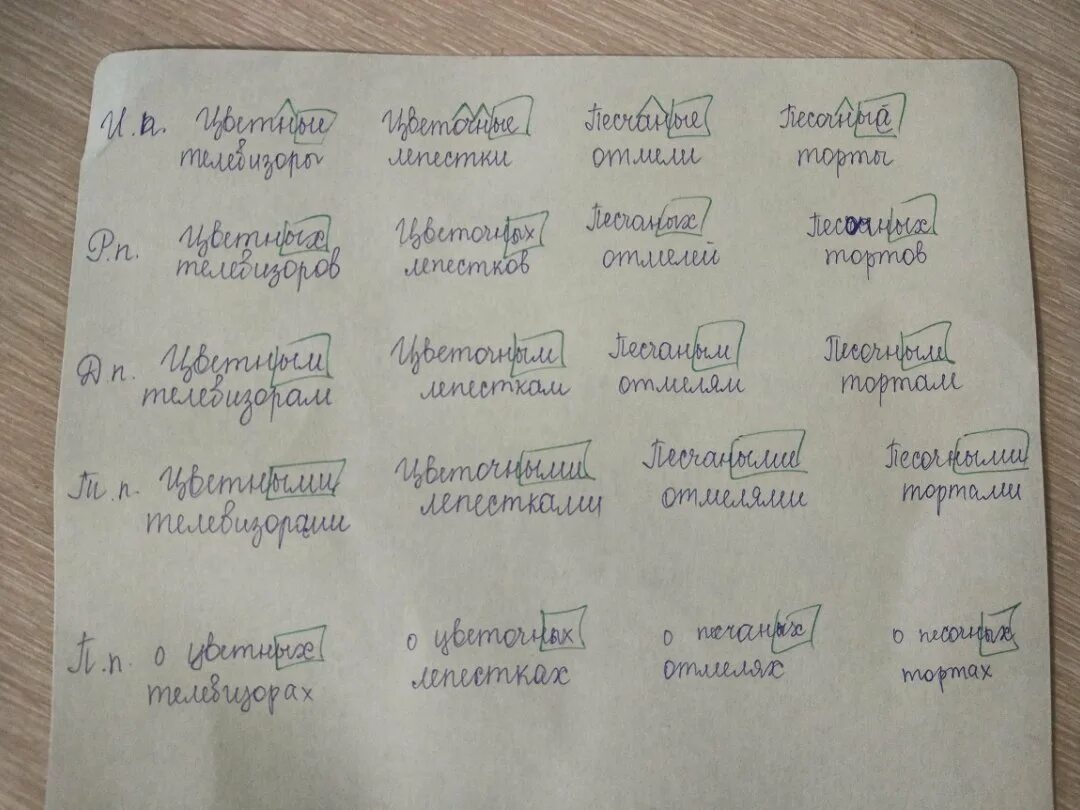 И.п. Цветные Цветочные Песчаные Песочный
телевизоры лепестки отмели торты
Р.п. Цветных Цветочных Песчаных Песочных
телевизоров лепестков отмелей тортов
Д.п. Цветным Цветочным Песчаным Песочным
телевизорам лепесткам отмелям тортам
Т.п. Цветными Цветочными Песчаными Песочными
телевизорами лепестками отмелями тортами
П.п. о цветных о цветочных о песчаных о песочных
телевизорах лепестках отмелях тортах